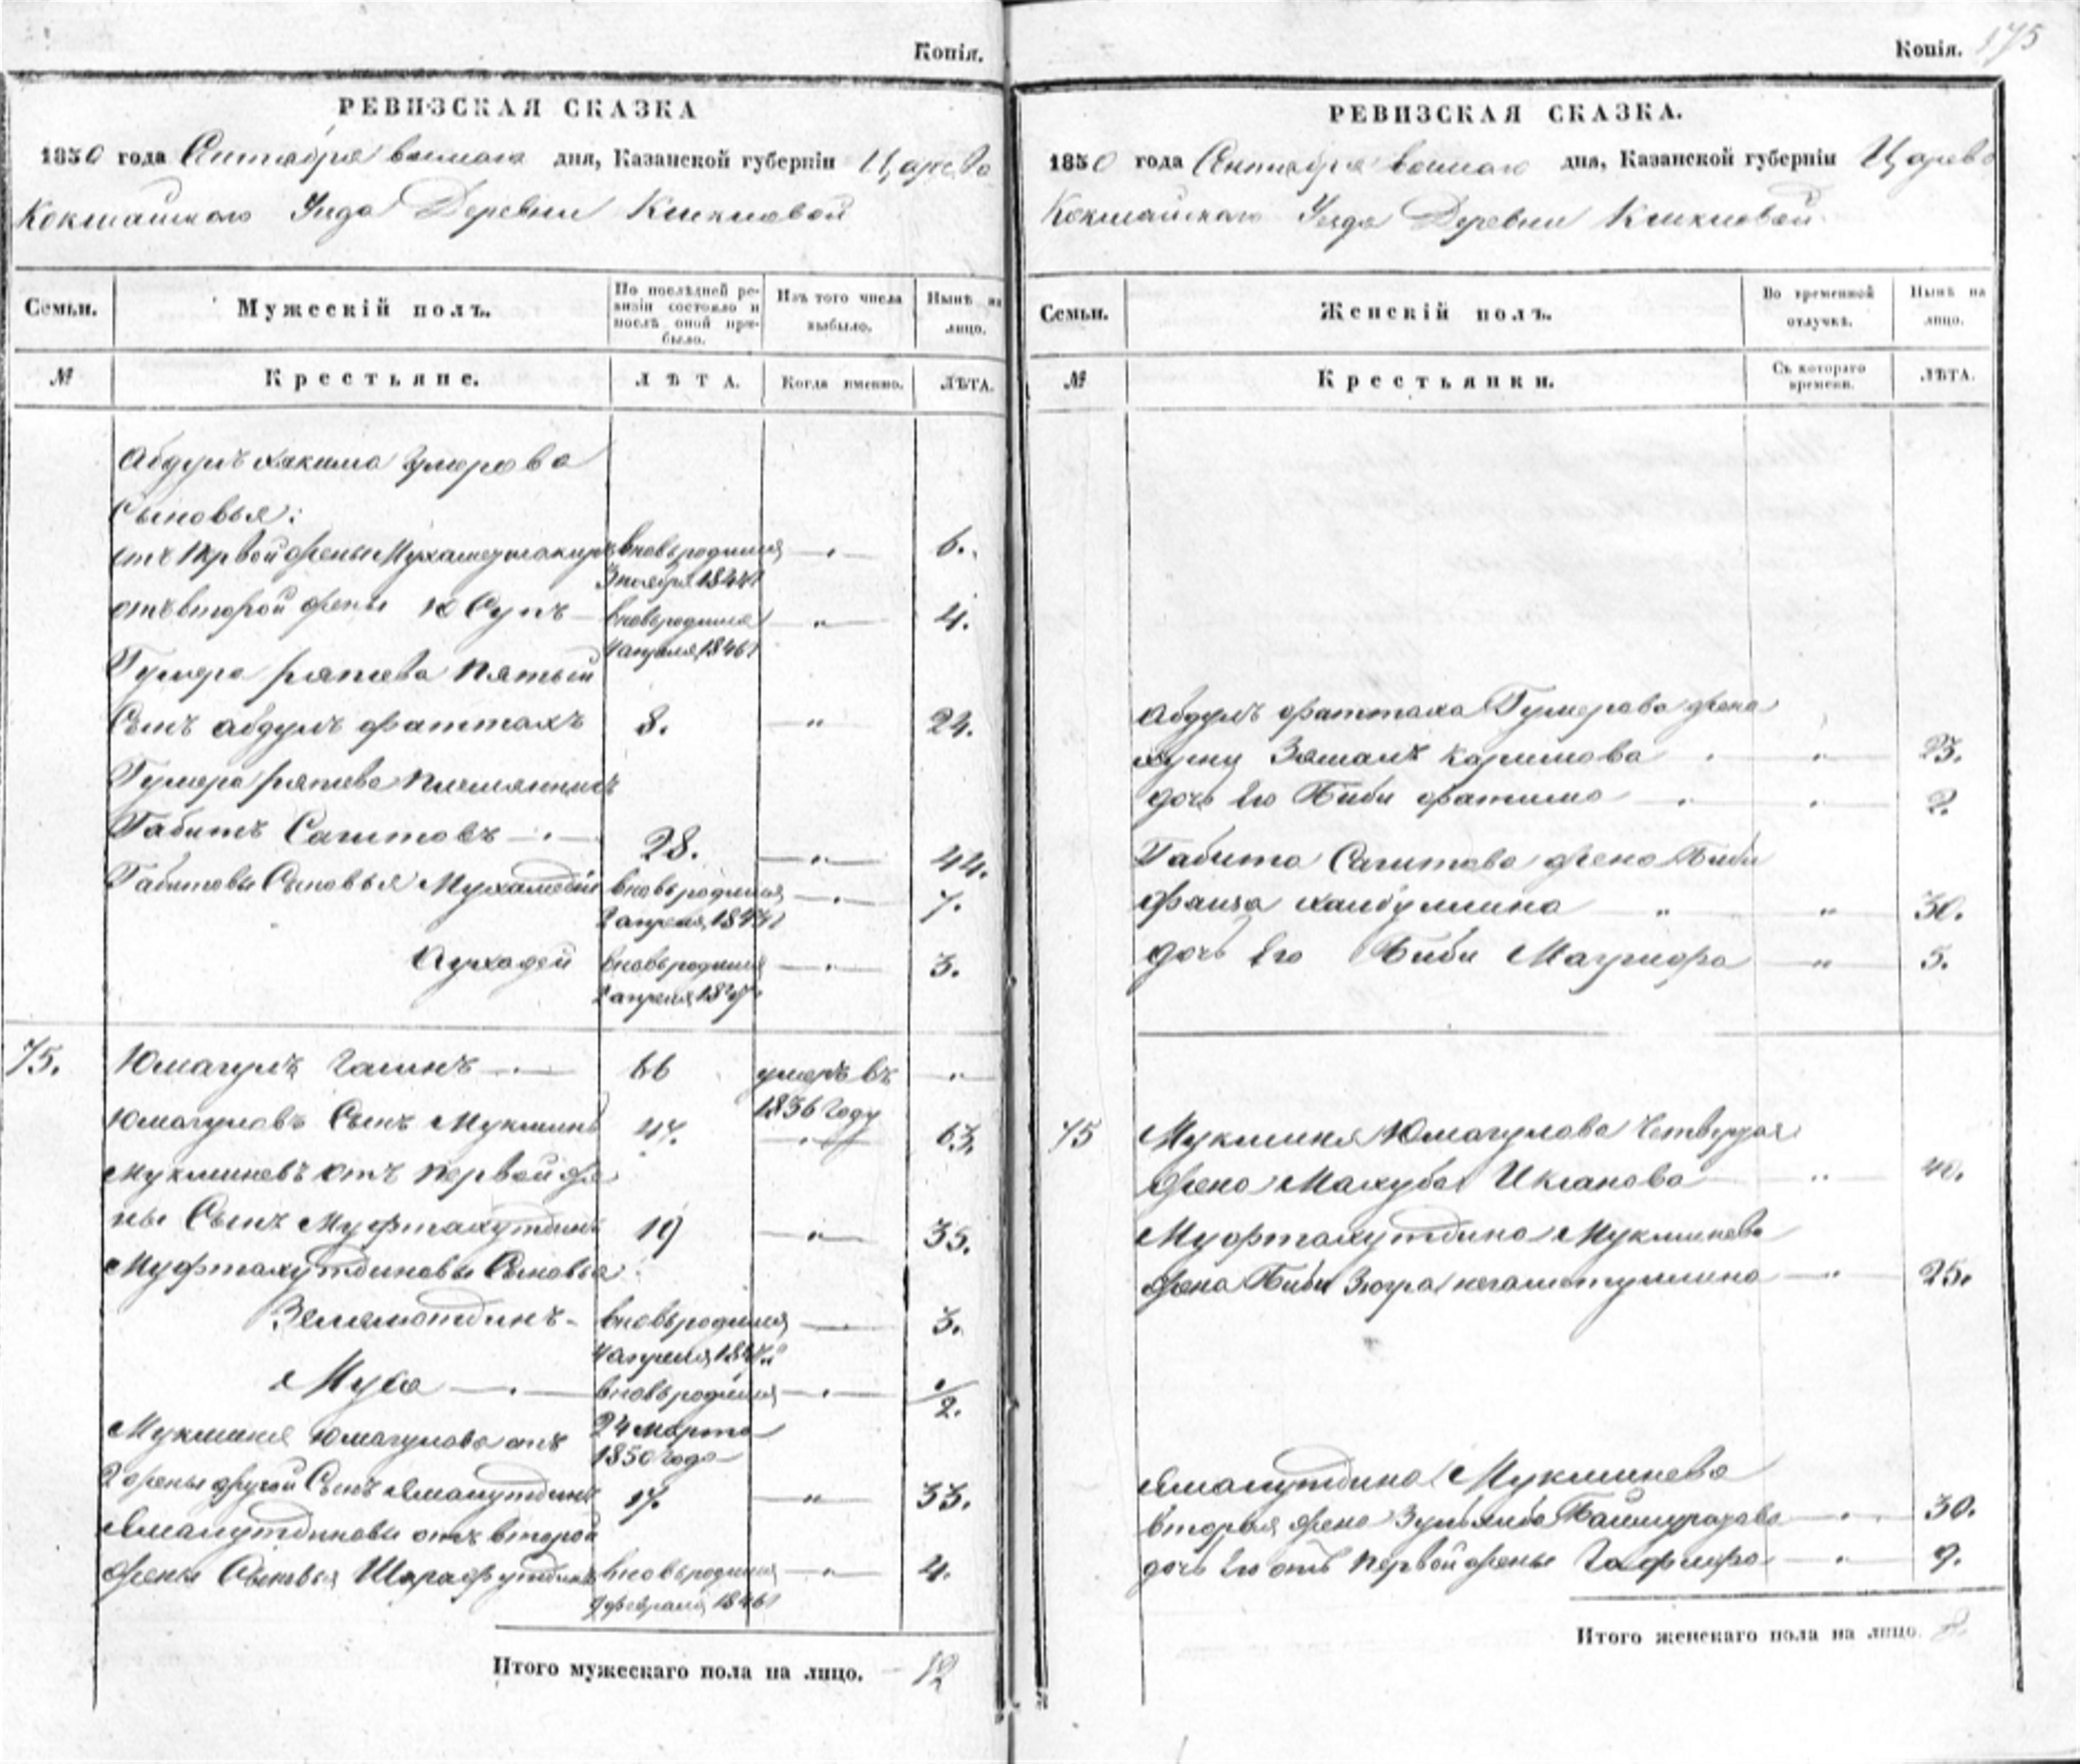 Копія.
РЕВИЗСКАЯ СКАЗКА
1850 года Сентября восмаго дня, Казанской губерніи Царево
Кокшайскаго Уезда Деревни Кшкловой
Семьи.
Мужескій полъ.
По послѣдней ре-
визіи состояло и
послѣ оной при-
было.
Изъ того числа
выбыло.
Нынѣ на
лицо.
№
Крестьяне.
ЛѢТА.
Когда именно.
ЛѢТА.
Абдулъ Хакима Гумерова
Сыновья:
отъ первой жены Мухаметшакиръ вновь родился 6.
3 ноября 1844
отъ второй жены Юсупъ вновь родился 4.
4 апреля 1846
Гумера пятый
Сынъ Абдулъ Фаттахъ 8. 24.
Гумера племянникъ
Габитъ Сагитовъ 28. 44.
Габитовы Сыновья вновь родился 7.
2 апреля 1843
Ахмадей вновь родился 3.
2 апреля 1847
75. Юмагулъ Галинъ 66 умеръ въ
1836 году
Юмагуловъ Сынъ Мукминъ 47. 63.
Мукминевъ отъ первой же
ны Сынъ Муфтахутдинъ 19 35.
Муфтахутдиновы Сыновья
вновь родился 3.
4 апреля 1847
Муса вновь родился 1/2.
24 марта
1850 года
Мукминя Юмагулова отъ
2 жены другой Сынъ Ямалутдинъ 17. 33.
Ямалутдиновы отъ второй
жены Сыновья Шарафутдинъ вновь родился 4.
9 февраля 1846
Итого мужескаго пола на лицо. 12
Копія. 175
РЕВИЗСКАЯ СКАЗКА.
1850 года Сентября восмаго дня, Казанской губерніи Царево
Кокшайскаго Уезда Деревни Кшкловой
Семьи.
Женскій полъ.
Во временной
отлучкѣ.
Нынѣ на
лицо.
№
Крестьянки.
Съ котораго
времени.
ЛѢТА.
Абдулъ Фаттаха Гумерова жена
Каримова 23.
дочь Его Биби Фатима 2.
Габита Сагитова жена Биби
Фаиза Хайбуллина 30.
дочь Его Биби Магзюфра 5.
75 Мукминя Юмагулова четвертая
жена Махуба 40.
Муфтахутдина Мукминева
жена Биби Зюгра Негаметуллина 25.
Ямалутдина Мукминева
вторая жена Баймурадова 30.
дочь Его отъ первой жены 9.
Итого женскаго пола на лицо 8.